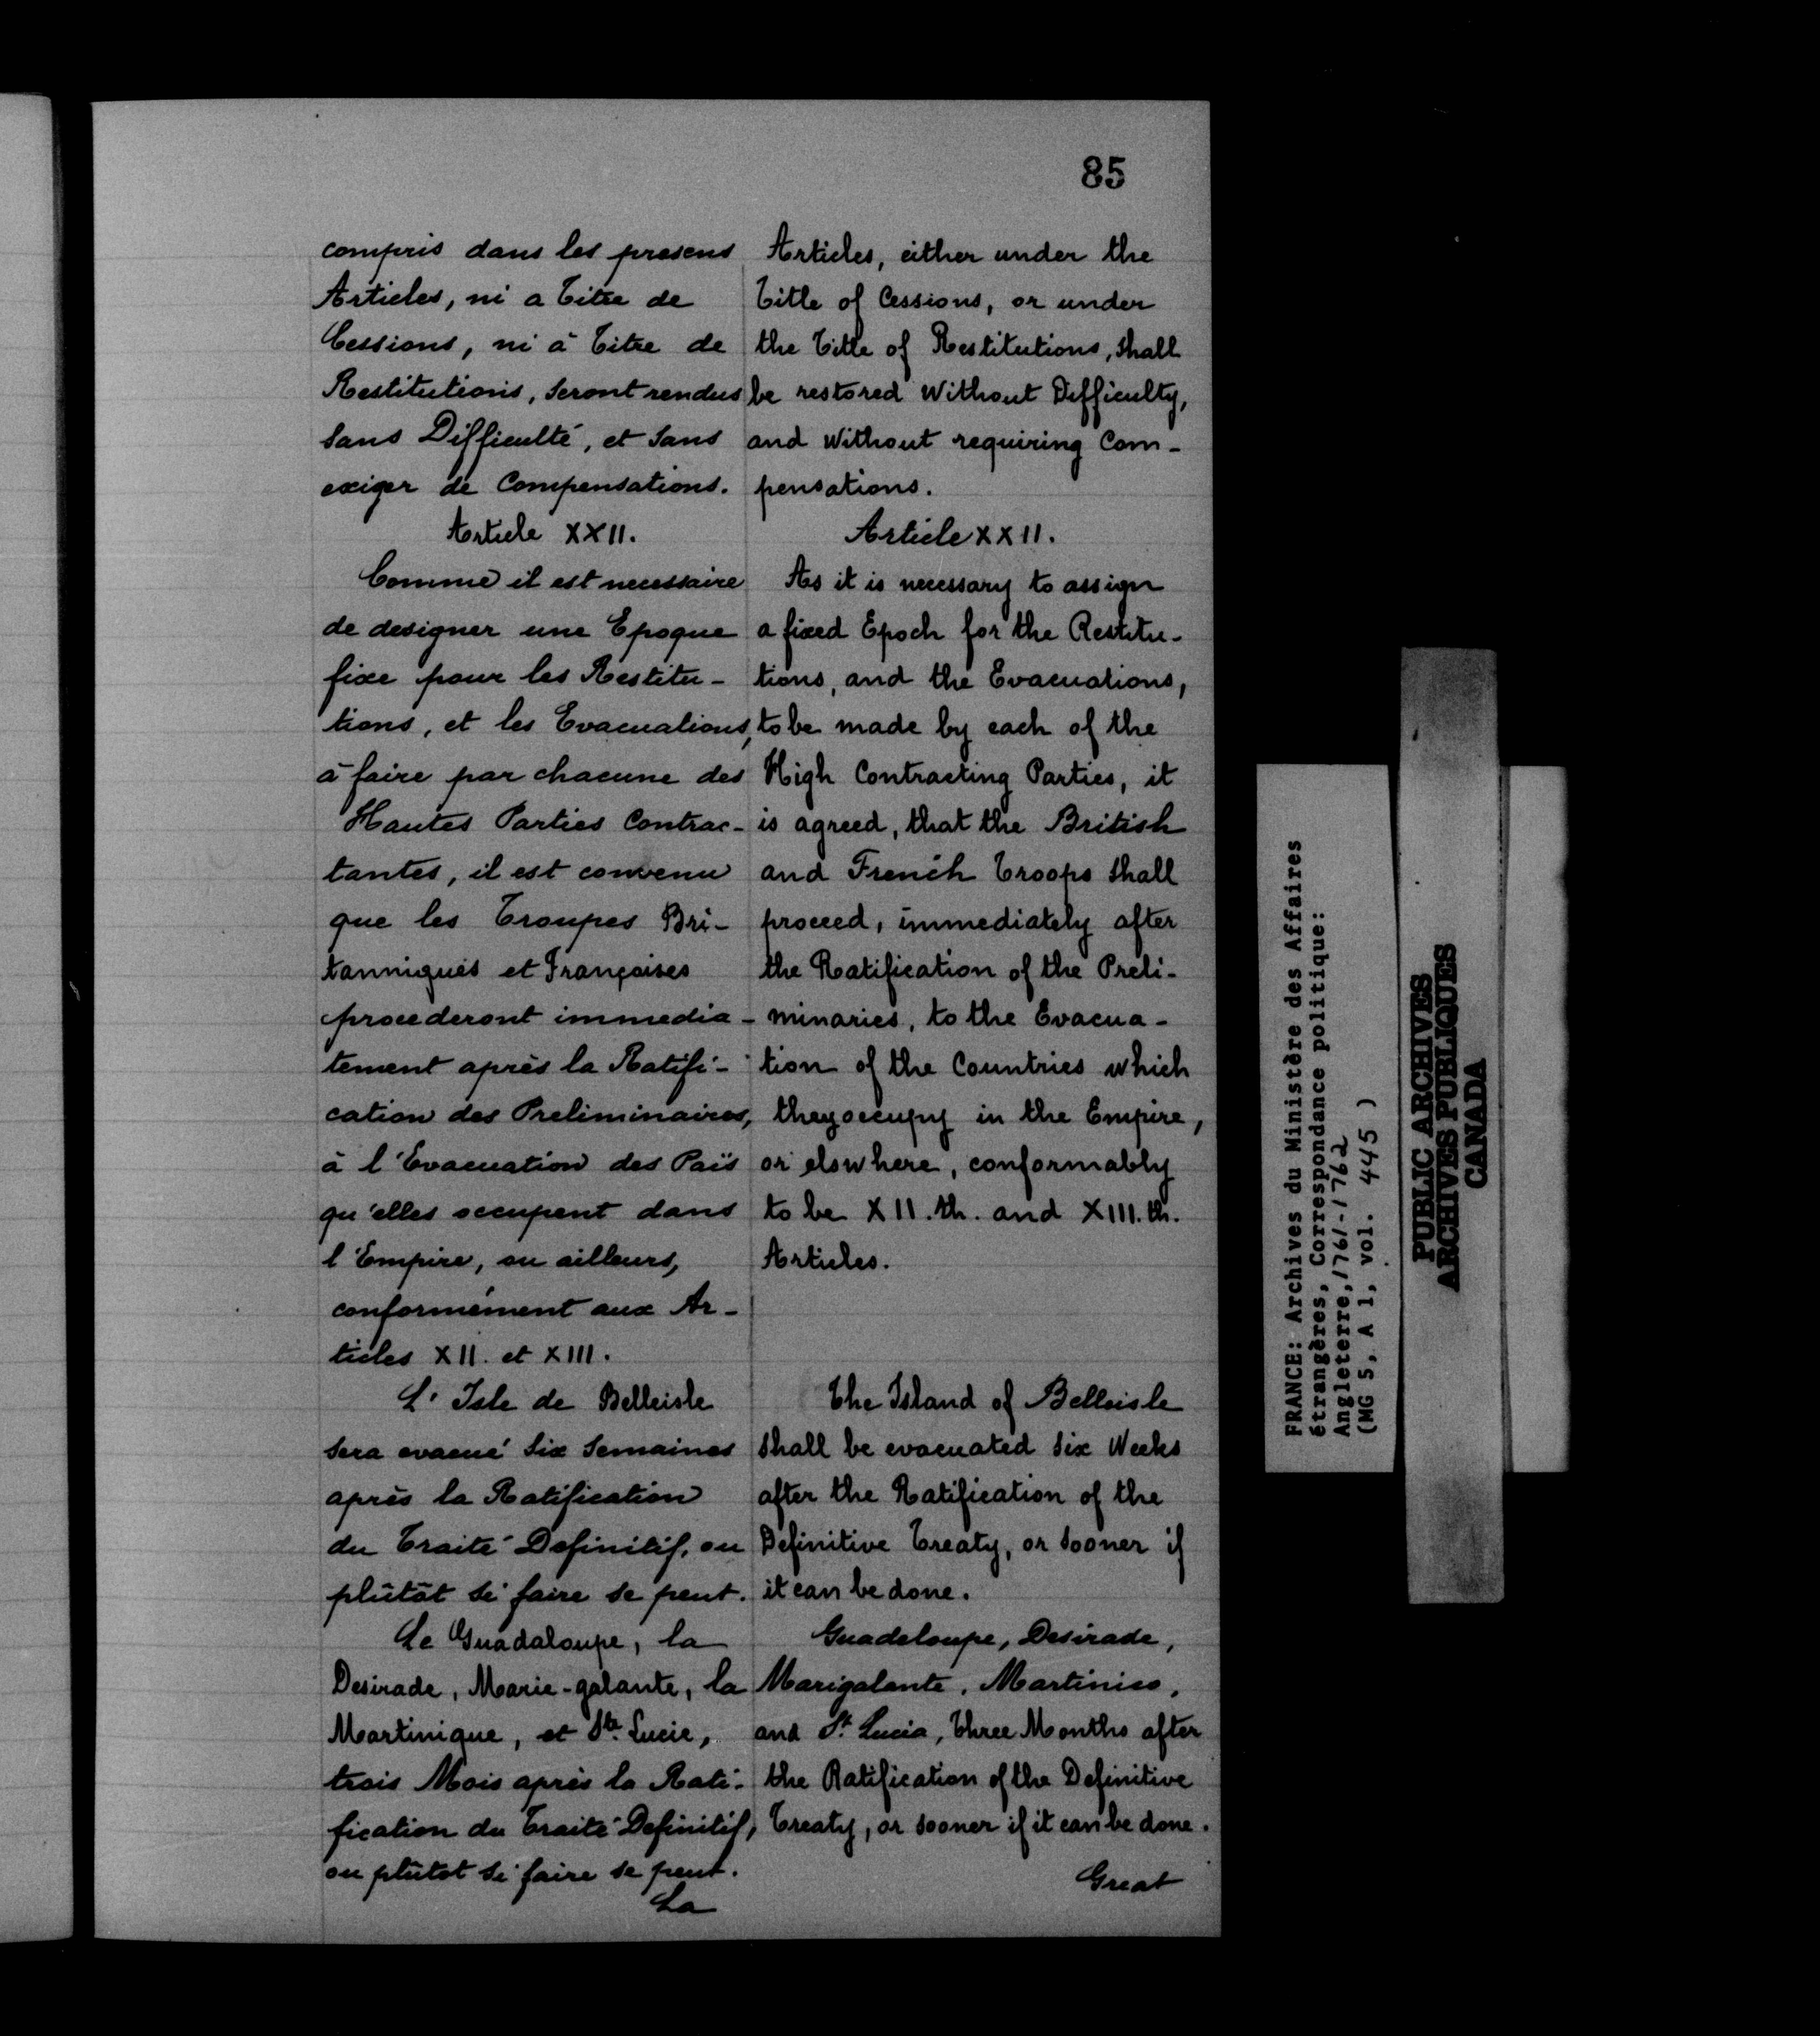 85
compris dans les presens
Articles, ni a Titre de
Cessions, ni à Titre de
Restitutions, seront rendus
sans Difficulté, et sans
exiger de Compensations.
Article XXII.
Comme il est necessaire
de designer une Epoque
fixe pour les Restitu-
tions, et les Evacuations,
à faire par chacune des
Hautes Parties Contrac-
tantes, il est convenu
que les Troupes Bri-
tanniques et Françoises
procederont immedia-
tement après la Ratifi-
cation des Preliminaires,
à l'Evacuation des Païs
qu'elles occupent dans
l'Empire, ou ailleurs,
conformément aux Ar-
ticles XII. et XIII.
L'Isle de Belleisle
sera evacué six semaines
après la Ratification
du Traité Definitif, ou
plûtôt si faire se peut.
Le Guadaloupe, la
Desirade, Marie-galante, la
Martinique, et Ste. Lucie,
trois Mois après la Rati-
fication du Traité Definitif,
ou plûtot si faire se peut.
La
Articles, either under the
Title of Cessions, or under
the Title of Restitutions, shall
be restored Without Difficulty,
and Without requiring Com-
pensations.
Article XXII.
As it is necessary to assign
a fixed Epoch for the Restitu-
tions, and the Evacuations,
to be made by each of the
High Contracting Parties, it
is agreed, that the British
and French Troops shall
proceed, immediately after
the Ratification of the Preli-
minaries, to the Evacua-
tion of the Countries which
they occupy in the Empire,
or elswhere, conformably
to be XII.th. and XIII.th.
Articles.
The Island of Belleisle
shall be evacuated six Weeks
after the Ratification of the
Definitive Treaty, or sooner if
it can be done.
Guadeloupe, Desirade,
Marigalante, Martinico,
and St. Lucia, Three Months after
the Ratification of the Definitive
Treaty, or sooner if it can be done.
Great
FRANCE: Archives du Ministère des Affaires
étrangères, Correspondance politique:
Angleterre, 1761-1762
(MG 5, A 1, vol. 445 )
PUBLIC ARCHIVES
ARCHIVES PUBLIQUES
CANADA